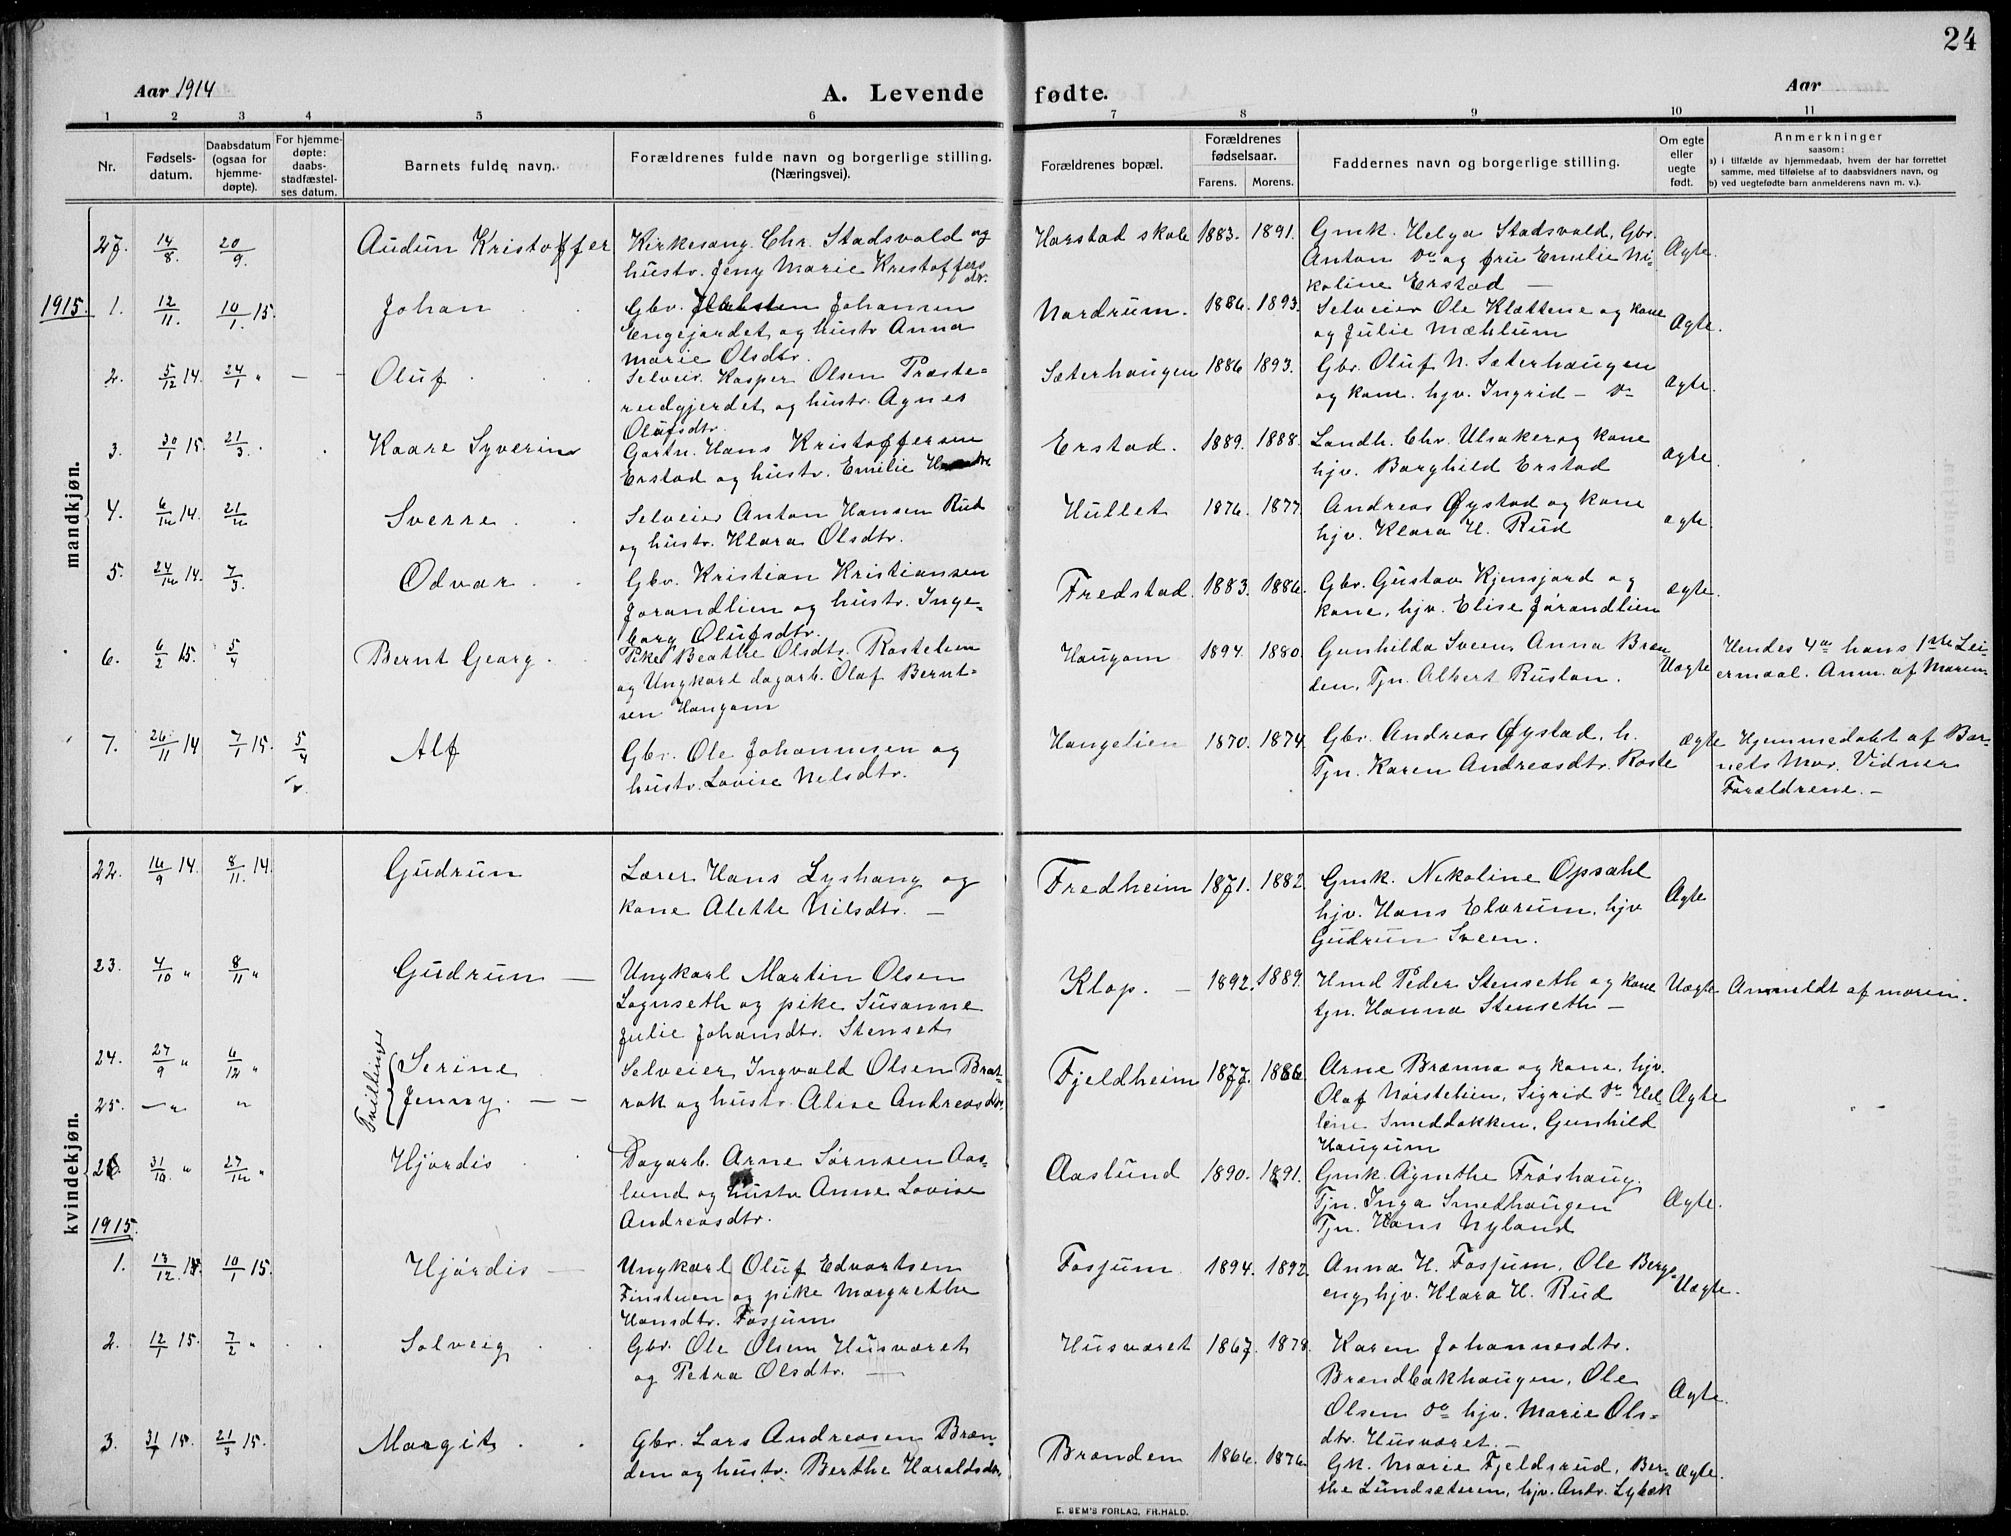 24
Aar 1914
A. Levende fødte.
Aar
1 2 3 4 5 6 7 8 9 10 11
Nr.
Fødsels-
datum.
Daabsdatum
(ogsaa for
hjemme-
døpte).
For hjemme-
døpte:
daabs-
stadfæstel-
ses datum.
Barnets fulde navn.
Forældrenes fulde navn og borgerlige stilling.
(Næringsvei).
Forældrenes bopæl.
Forældrenes
fødselsaar.
Farens. Morens.
Faddernes navn og borgerlige stilling.
Om egte
eller
uegte
født.
Anmerkninger
saasom:
a) i tilfælde av hjemmedaab, hvem der har forrettet
samme, med tilføielse af to daabsvidners navn, og
b) ved uegtefødte barn anmelderens navn m. v.).
mandkjøn.
27. 14/8. 20/9. Audun Kristoffer
Kirkesang. Chr. Stadsvold og
hustr. Jeny Marie Kristoffers
dr.
Harstad skole 1883. 1891.
Gmk. Helga Stadsvold, Gbr.
Anton do og fru Emilie Ni-
koline Erstad —
Ægte.
1915. 1. 12/11. 10/1. 15. Johan
Gbr. Halsten Johansen
Engejordet og hustr. Anna
Marie Olsdtr.
Nordrum. 1886. 1893.
Selveier Ole Klættene og kone
og Julie Mæhlum
Ægte.
2. 5/12 14. 24/1 " Oluf
Selveir. Kasper Olsen Præste-
rudgjerdet og hustr. Agnes
Olufsdtr.
Sæterhaugen 1886 1893.
Gbr. Oluf N. Sæterhaugen
og kone. hjv. Ingrid — do
ægte.
3. 30/1 15. 21/3. Kaare Syverin
Gartn. Hans Kristoffersen
Erstad og hustr. Emilie
Erstad. 1889. 1888.
Landh. Chr. Ulsaker og kone
hjv. Borghild Erstad
ægte
4. 6/12 14. 21/12 Sverre
Selveier Anton Hansen Rud
og hustr. Klara Olsdtr.
Hullet 1876. 1877.
Andreas Øystad og kone
hjv. Klara H. Rud
ægte
5. 24/12 14. 7/3. Odvar
Gbr. Kristian Kristiansen
Jorandlien og hustr. Inge-
borg Olufsdtr.
Fredstad. 1883. 1886.
Gbr. Gustav Kjensjord og
kone, hjv. Elise Jørandlien
ægte.
6. 6/2 15. 5/4 Bernt Georg.
Pike Beathe Olsdtr. Rostelien
og Ungkarl dagarb. Olaf Bernt-
sen Haugom
Haugom 1894. 1880.
Gunhilda Sveen, Anna Bræn
den, Tjn. Albert Rustan.
Uægte
Hendes 4de hans 1ste Lei-
ermaal. Anm. af Moren
7. 26/11 14 7/1 15. 5/4 Alf
Gbr. Ole Johannesen og
hustr. Lovise Nilsdtr.
Haugelien 1870. 1874.
Gbr. Andreas Øystad, h.
Tjn. Karen Andreasdtr. Roste
ægte
Hjemmedøbt af Bar-
nets Mor. Vidner
Forældrene. —
kvindekjøn.
22. 14. 8/11. 14. Gudrun
Lærer Hans Lyshaug og
kone Alette Nilsdtr. —
Fredheim 1871. 1882.
Gmk. Nikoline Opsahl
hjv. Hans Elvrum, hjv
Gudrun Sveen.
Ægte
23. 4/10 " 8/11 " Gudrun —
Ungkarl Martin Olsen
Sognseth og pike Susanne
Julie Johansdtr. Stenset
Klop. — 1892. 1889.
Hmd Peder Stenseth og kone
tjn. Hanna Stenseth —
Uægte
Anmeldt af moren.
24. 27/9 " 6/12 " Tvillinger Serine
25. — " — " Jenny. — —
Selveier Ingvald Olsen Brat-
rok og hustr. Alise Andreasdtr.
Fjeldheim 1877. 1886.
Arne Brænna og kone, hjv.
Olaf Nørstelien, Sigrid do Hel-
lene Smeddokken, Gunhild
Haugum
Ægte
26. 31/10 " 27/12 " Hjørdis
Dagarb. Arne Sørnsen Aas-
lund og hustr Anne Lovise
Andreasdtr.
Aaslund 1890. 1891.
Gmk. Agnethe Frøshaug.
Tjn. Inga Smedhaugen
Tjn. Hans Nyland
Ægte.
1915.
1. 13/12. 10/1 15. Hjørdis —
Ungkarl Oluf Edvartsen
Finstuen og pike Margrethe
Hansdtr. Fosjum
Fosjum 1894. 1892.
Anna H. Fosjum, Ole Berge-
eng, hjv. Klara H. Rud
Uægte.
2. 12/1 15. 7/2 " Solveig
Gbr. Ole Olsen Husværet
og Petra Olsdtr. —
Husværet 1867. 1878.
Karen Johannesdtr.
Brændbakhaugen, Ole
Olsen do hjv. Marie Ols-
dtr. Husværet. —
Ægte.
3. 31/1 15. 21/3 15. Margit
Gbr. Lars Andreasen Bræn-
den og hustr. Berthe Haraldsdtr.
Brænden 1866. 1876.
Gk. Marie Fjeldsrud, Ber-
the Lundsæteren, hjv. Andr. Lybæk
Ægte.
E. SEM'S FORLAG, FR.HALD.